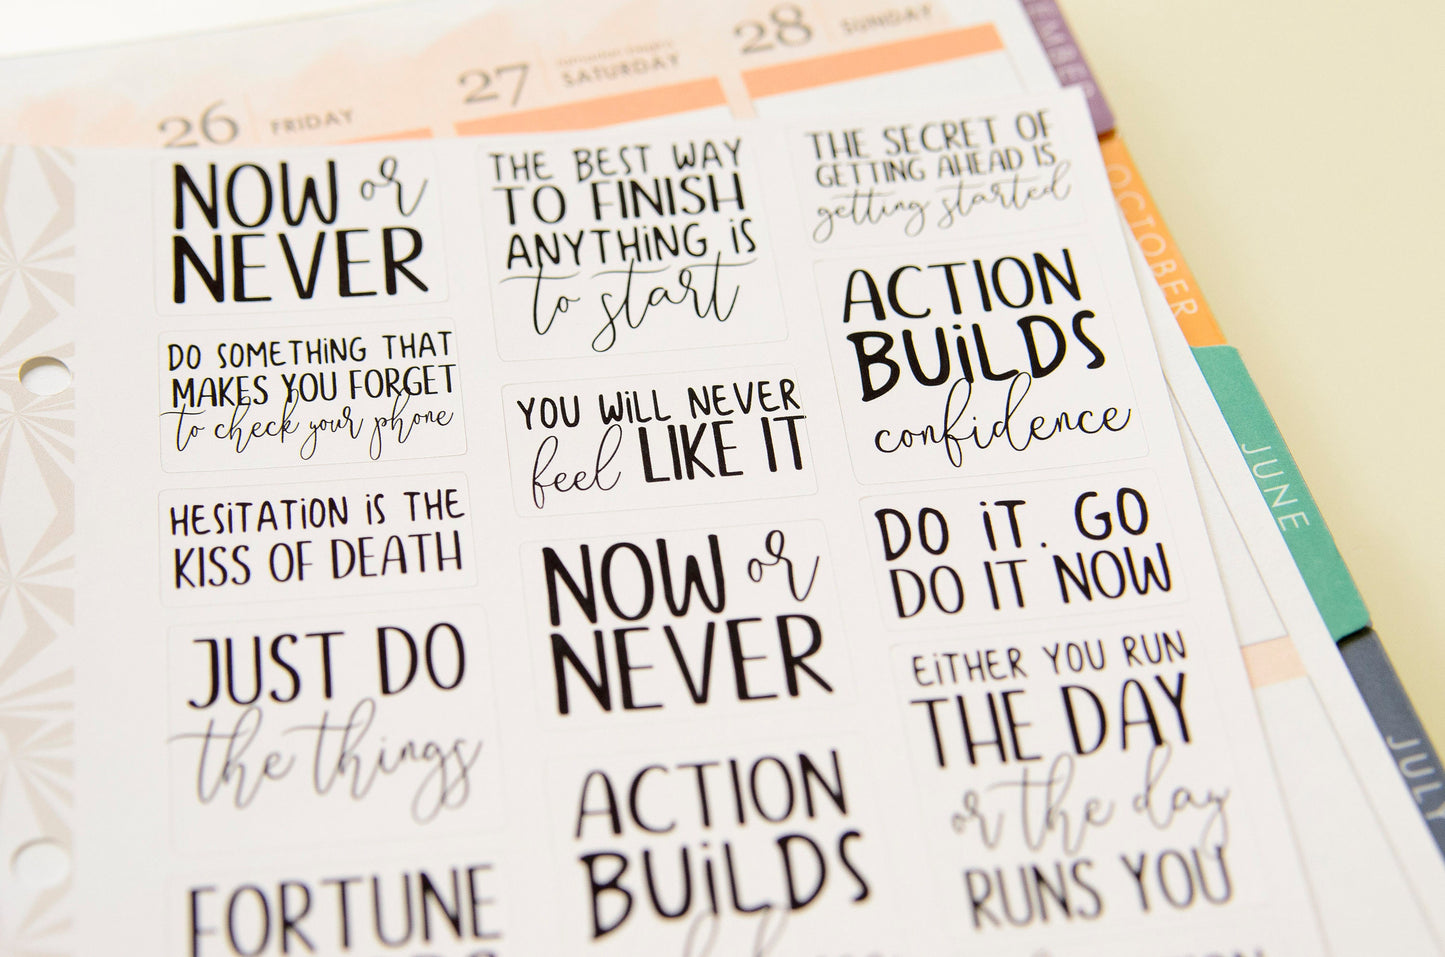 26 FRIDAY
27 SATURDAY
28 SUNDAY
EMBER
OCTOBER
JUNE
JULY
NOW or
NEVER
DO SOMETHING THAT
MAKES YOU FORGET
to check your phone
HESITATION IS THE
KISS OF DEATH
JUST DO
the things
FORTUNE
THE BEST WAY
TO FINISH
ANYTHING IS
to start
YOU WILL NEVER
feel LIKE IT
NOW or
NEVER
ACTION
BUILDS
THE SECRET OF
GETTING AHEAD IS
getting started
ACTION
BUILDS
confidence
DO IT. GO
DO IT NOW
EITHER YOU RUN
THE DAY
or the day
RUNS YOU